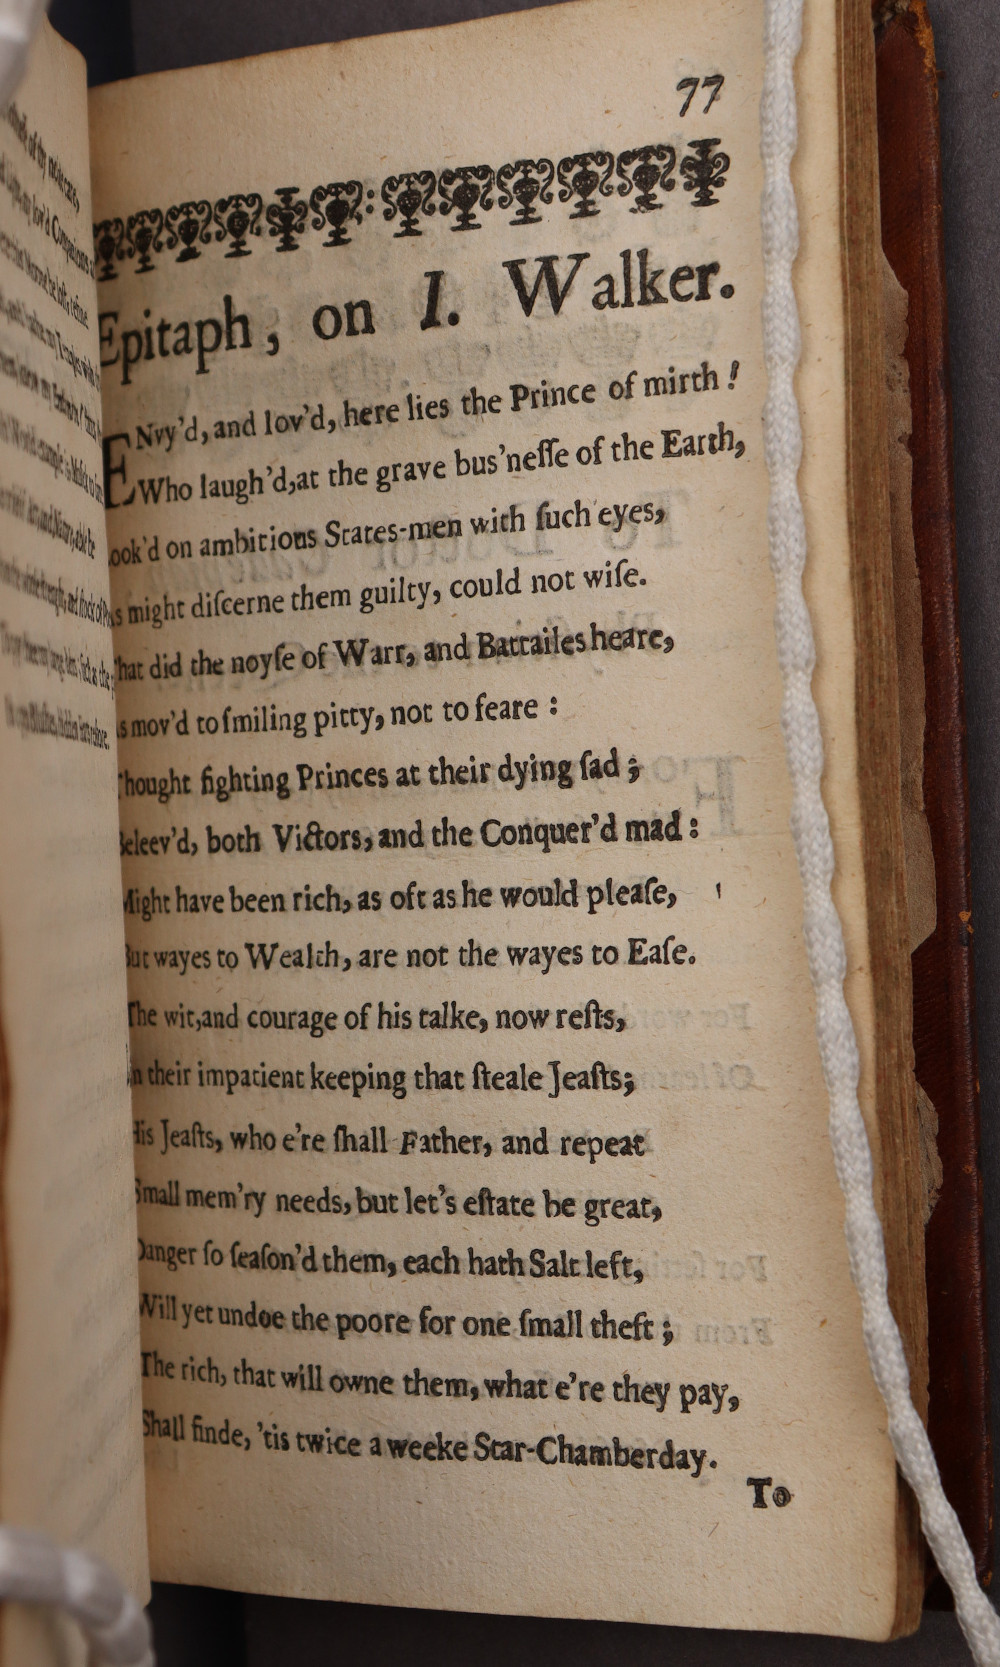 77
Epitaph, on I. Walker.
ENvy'd, and lov'd, here lies the Prince of mirth!
Who laugh'd,at the grave bus'neſſe of the Earth,
ook'd on ambitious States-men with ſuch eyes,
s might diſcerne them guilty, could not wiſe.
hat did the noyſe of Warr, and Battailes heare,
s mov'd to ſmiling pitty, not to feare :
hought fighting Princes at their dying ſad ;
eleev'd, both Victors, and the Conquer'd mad :
Might have been rich, as oft as he would pleaſe,
But wayes to Wealth, are not the wayes to Eaſe.
The wit,and courage of his talke, now reſts,
n their impatient keeping that ſteale Jeaſts;
His Jeaſts, who e're ſhall Father, and repeat
Small mem'ry needs, but let's eſtate be great,
Danger ſo ſeaſon'd them, each hath Salt left,
Will yet undoe the poore for one ſmall theft ;
The rich, that will owne them, what e're they pay,
Shall finde, 'tis twice a weeke Star-Chamberday.
To